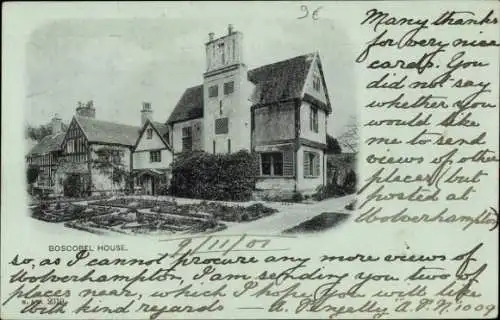 3€
Many thanks
for very nice
cards. You
did not say
whether you
would like
me to send
views of other
places (but
posted at
Wolverhampton)
BOSCOBEL HOUSE.
9/11/01
so, as I cannot procure any more views of
Wolverhampton, I am sending you two of
places near, which I hope you will like
With kind regards — A. A.P.N. 1009